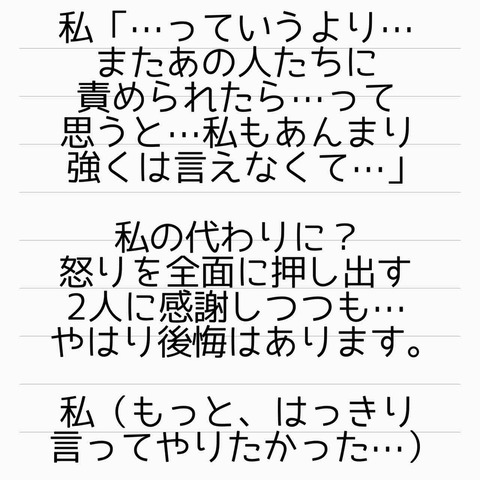 私「…っていうより…
またあの人たちに
責められたら…って
思うと…私もあんまり
強くは言えなくて…」
私の代わりに?
怒りを全面に押し出す
2人に感謝しつつも…
やはり後悔はあります。
私(もっと、はっきり
言ってやりたかった…)